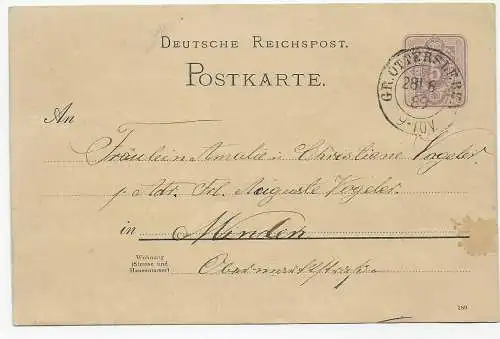 DEUTSCHE REICHSPOST.
POSTKARTE.
GR. OTTERSLEBEN
28 6
89
9-10V
An
Fräulein Amalie u. Christiene Vogeler
p. Adr. Frl. Auguste Vogeler.
in Minden
Wohnung
(Strasse und
Hausnummer)
Obermarktstraße
189